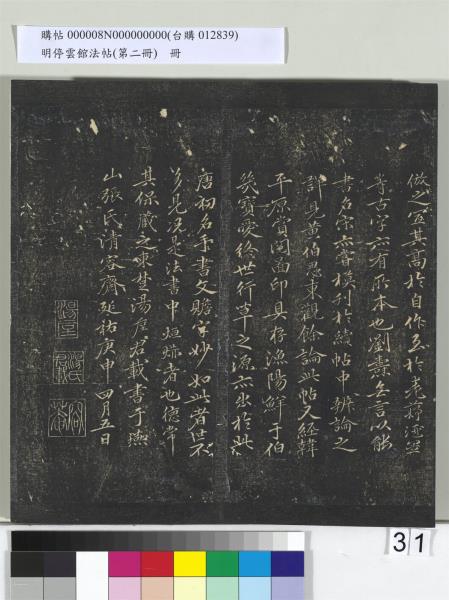 購帖 000008N000000000(台購 012839)
明停雲館法帖(第二冊) 冊
倣之宜其高於自作至於老
等古字亦有所本也劉燾無言以能
書名宋亦嘗模刻於續帖中辨論之
詳見黃伯思東觀餘論此帖又經韓
平原賞閱面印具存漁陽鮮于伯
幾寶愛終世行草之源亦出於此
唐初名手書文贍字妙如此者世不
多見況是法書中烜赫者也德常
其保藏之東楚湯垕君載書于燕
山張氏清容齋延祐庚申四月五日
湯垕
31